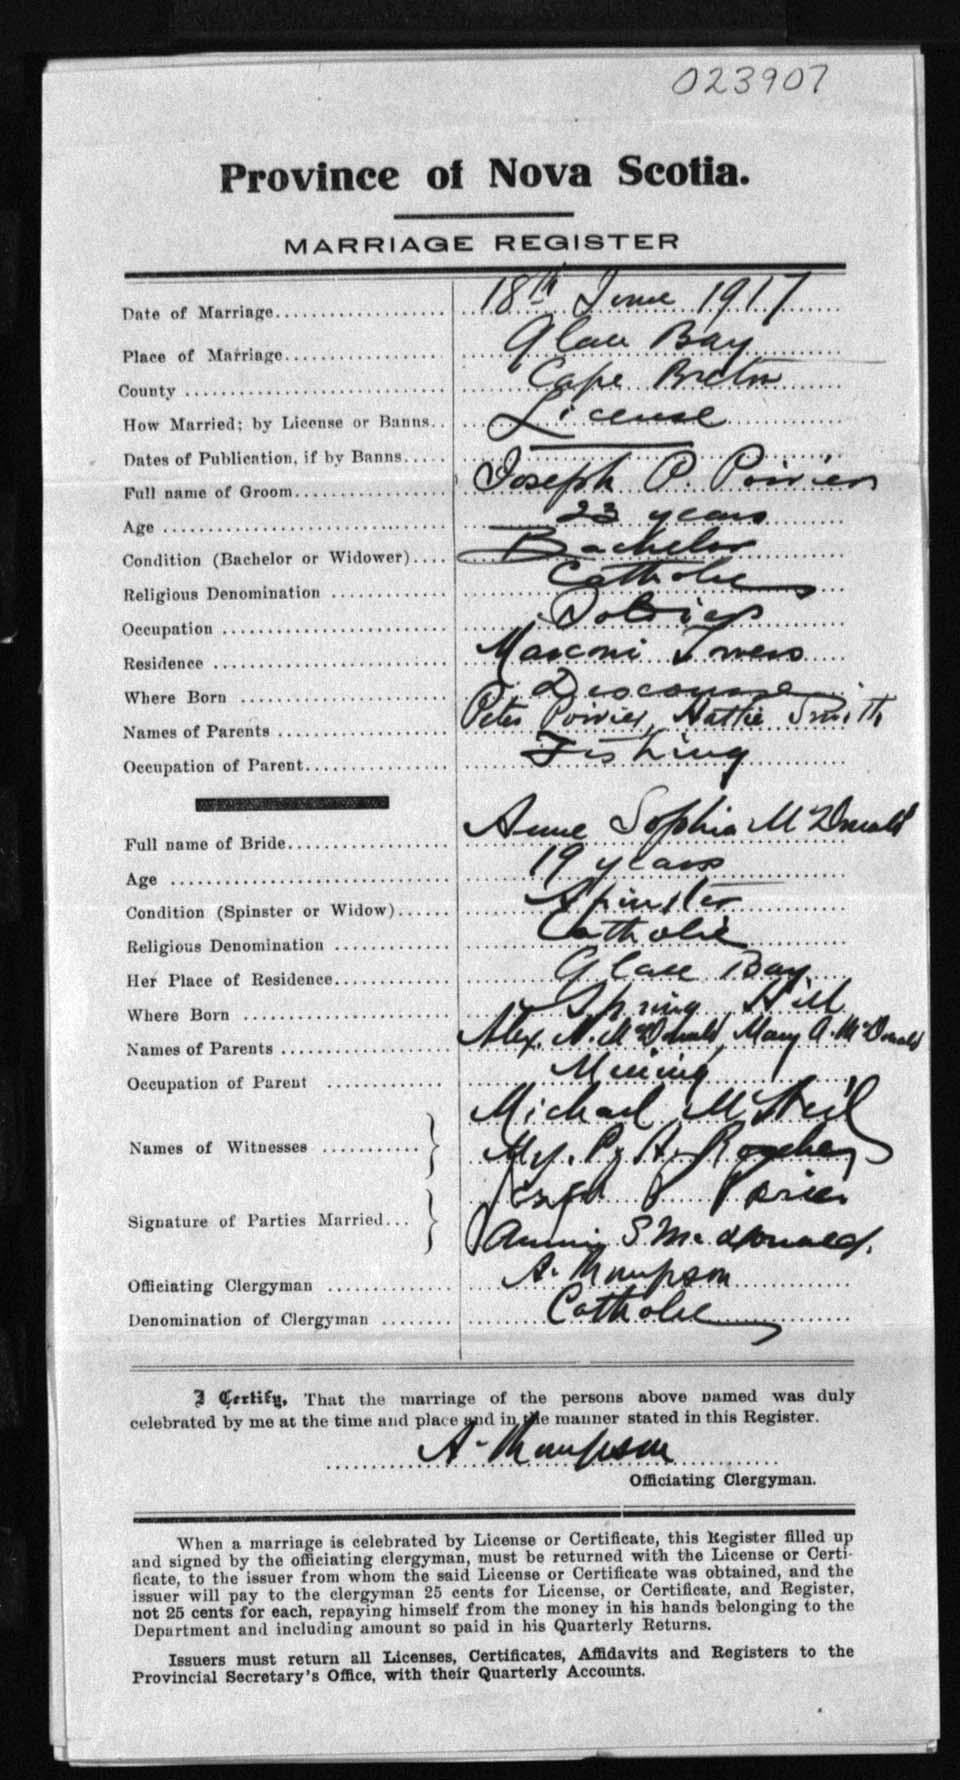 023907
Province of Nova Scotia.
MARRIAGE REGISTER
Date of Marriage 18th June 1917
Place of Marriage Glace Bay
County Cape Breton
How Married; by License or Banns License
Dates of Publication, if by Banns
Full name of Groom Joseph P. Poirier
Age 23 years
Condition (Bachelor or Widower) Bachelor
Religious Denomination Catholic
Occupation Soldier
Residence Marconi Towers
Where Born Discousse
Names of Parents Peter Poirier, Hattie Smith
Occupation of Parent Fishing
Full name of Bride Anne Sophia McDonald
Age 19 years
Condition (Spinster or Widow) Spinster
Religious Denomination Catholic
Her Place of Residence Glace Bay
Where Born Spring Hill
Names of Parents Alex. N. McDonald, Mary A. McDonald
Occupation of Parent Mining
Michael McNeil
Names of Witnesses
Joseph P Poirier
Signature of Parties Married
Annie S. McDonald.
Officiating Clergyman A. Thompson
Denomination of Clergyman Catholic
I Certify, That the marriage of the persons above named was duly
celebrated by me at the time and place and in the manner stated in this Register.
A. Thompson
Officiating Clergyman.
When a marriage is celebrated by License or Certificate, this Register filled up
and signed by the officiating clergyman, must be returned with the License or Certi-
ficate, to the issuer from whom the said License or Certificate was obtained, and the
issuer will pay to the clergyman 25 cents for License, or Certificate, and Register,
not 25 cents for each, repaying himself from the money in his hands belonging to the
Department and including amount so paid in his Quarterly Returns.
Issuers must return all Licenses, Certificates, Affidavits and Registers to the
Provincial Secretary's Office, with their Quarterly Accounts.